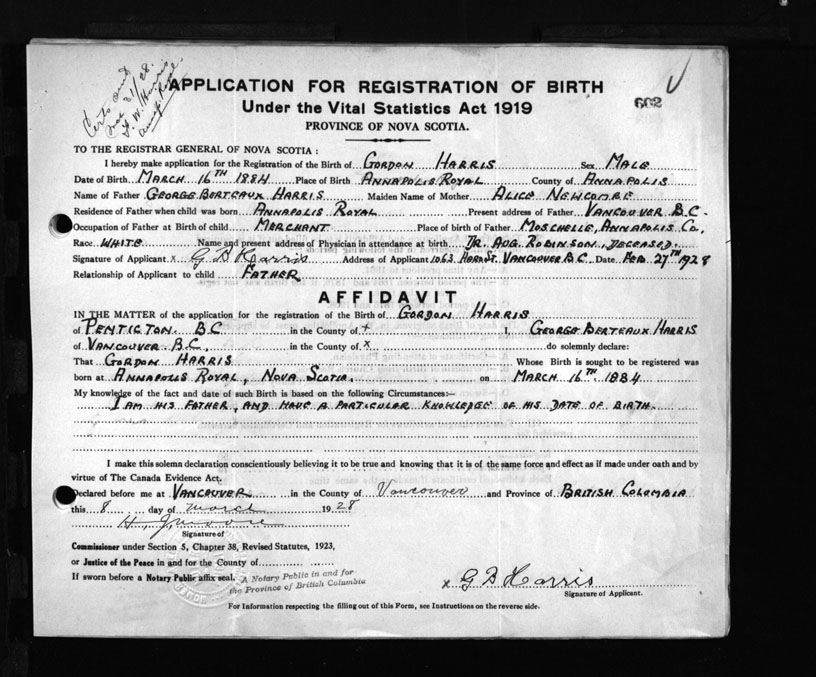 Certs and
mar 31/28.
G. W. Harris
Annap. Royal.
APPLICATION FOR REGISTRATION OF BIRTH
Under the Vital Statistics Act 1919
PROVINCE OF NOVA SCOTIA.
602
TO THE REGISTRAR GENERAL OF NOVA SCOTIA:
I hereby make application for the Registration of the Birth of GORDON HARRIS Sex MALE
Date of Birth MARCH 16TH 1884 Place of Birth ANNAPOLIS ROYAL County of ANNAPOLIS
Name of Father GEORGE BERTEAUX HARRIS Maiden Name of Mother ALICE NEWCOMBE
Residence of Father when child was born ANNAPOLIS ROYAL Present address of Father VANCOUVER B.C.
Occupation of Father at Birth of child MERCHANT Place of birth of Father MOSCHELLE, ANNAPOLIS CO.
Race WHITE Name and present address of Physician in attendance at birth DR. AUG. ROBINSON, DECEASED.
Signature of Applicant x G B Harris Address of Applicant 1063 HORO ST. VANCOUVER B.C. Date FEB 27TH 1928
Relationship of Applicant to child FATHER
AFFIDAVIT
IN THE MATTER of the application for the registration of the Birth of GORDON HARRIS
of PENTICTON. B.C in the County of + I, GEORGE BERTEAUX HARRIS
of VANCOUVER. B.C. in the County of x do solemnly declare:
That GORDON HARRIS Whose Birth is sought to be registered was
born at ANNAPOLIS ROYAL, NOVA SCOTIA. on MARCH 16TH. 1884
My knowledge of the fact and date of such Birth is based on the following Circumstances:—
I AM HIS FATHER, AND HAVE A PARTICULAR KNOWLEDGE OF HIS DATE OF BIRTH.
I make this solemn declaration conscientiously believing it to be true and knowing that it is of the same force and effect as if made under oath and by
virtue of The Canada Evidence Act.
Declared before me at VANCOUVER in the County of Vancouver and Province of BRITISH COLUMBIA
this 8 day of March 1928
H. J. Moore
Signature of
Commissioner under Section 5, Chapter 38, Revised Statutes, 1923,
or Justice of the Peace in and for the County of
If sworn before a Notary Public affix seal. A Notary Public in and for
the Province of British Columbia
x G B Harris
Signature of Applicant.
For Information respecting the filling out of this Form, see Instructions on the reverse side.